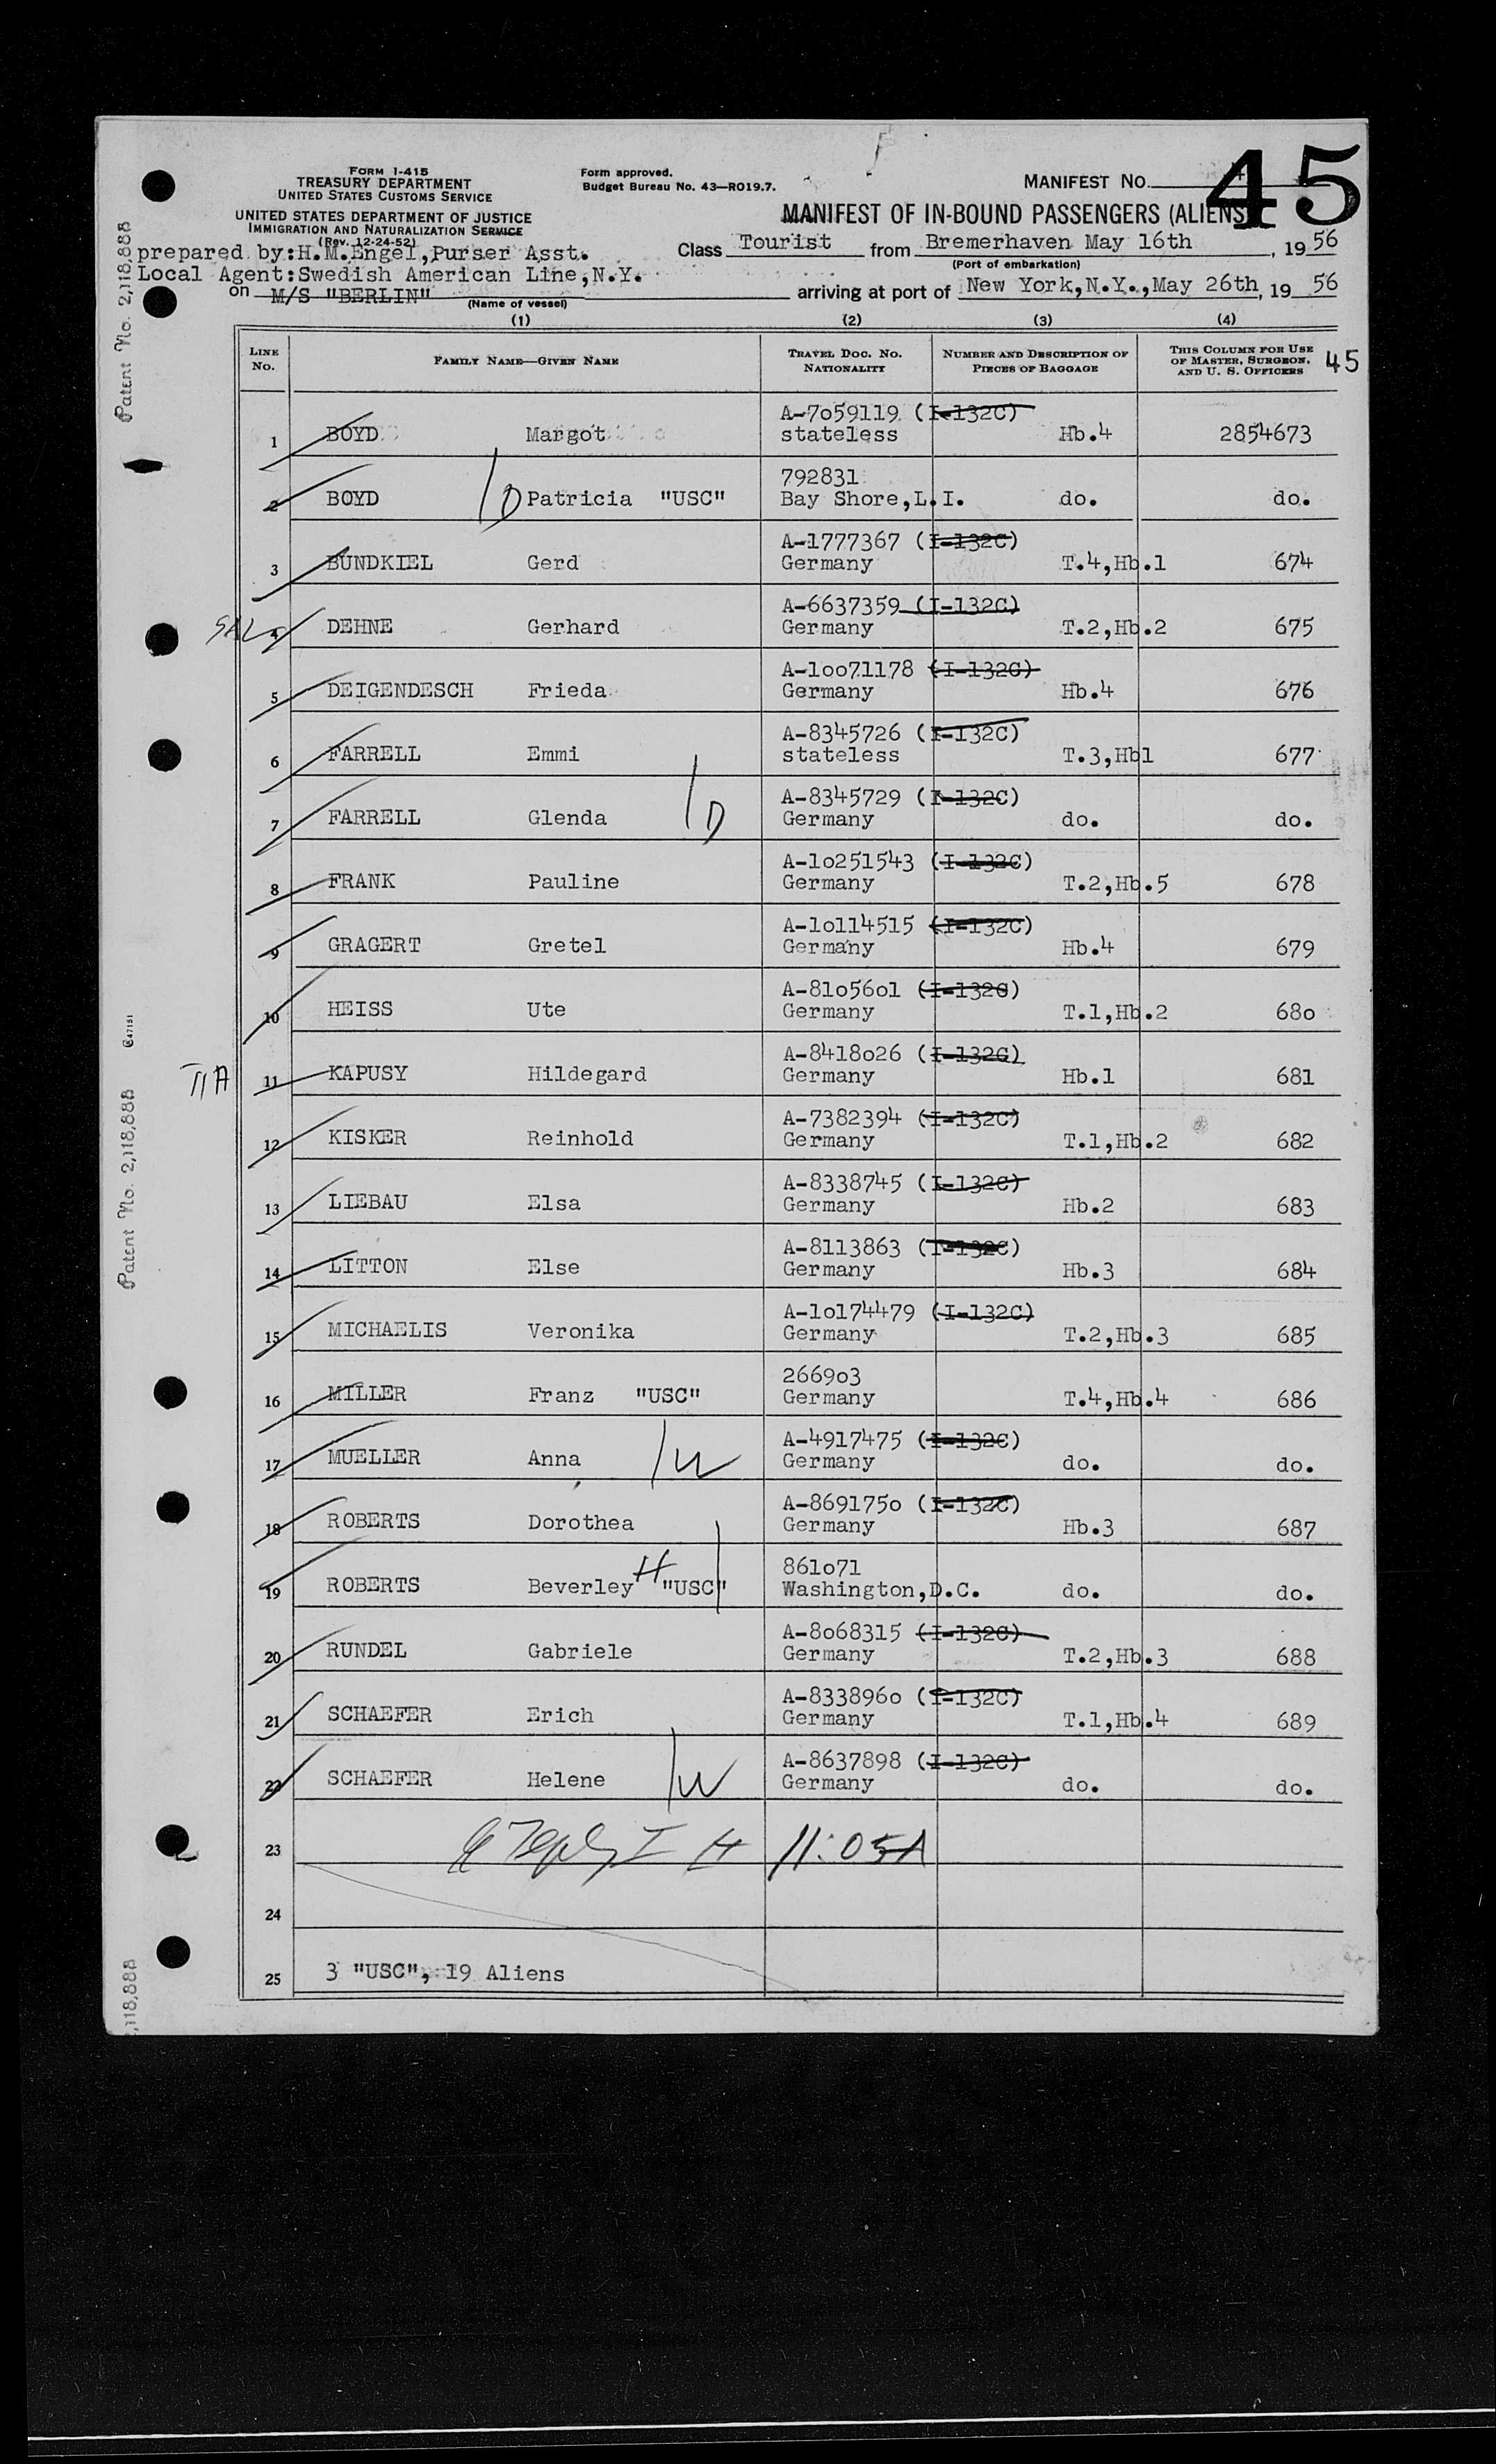 45
FORM I-415
TREASURY DEPARTMENT
UNITED STATES CUSTOMS SERVICE
UNITED STATES DEPARTMENT OF JUSTICE
IMMIGRATION AND NATURALIZATION SERVICE
(Rev. 12-24-52)
Form approved.
Budget Bureau No. 43—RO19.7.
MANIFEST NO.
MANIFEST OF IN-BOUND PASSENGERS (ALIENS)
prepared by:H.M.Engel,Purser Asst.
Class Tourist from Bremerhaven May 16th, 1956
(Port of embarkation)
Local Agent:Swedish American Line,N.Y.
on M/S "BERLIN" arriving at port of New York,N.Y.,May 26th, 19 56
(Name of vessel)
(1) (2) (3) (4)
LINE NO. FAMILY NAME—GIVEN NAME TRAVEL DOC. NO. NATIONALITY NUMBER AND DESCRIPTION OF PIECES OF BAGGAGE THIS COLUMN FOR USE OF MASTER, SURGEON, AND U. S. OFFICERS 45
A-7o59119 (I-132C)
1 BOYD Margot stateless Hb.4 2854673
792831
2 BOYD D Patricia "USC" Bay Shore,L.I. do. do.
A-1777367 (I-132C)
3 BUNDKIEL Gerd Germany T.4,Hb.1 674
A-6637359 (I-132C)
4 DEHNE Gerhard Germany T.2,Hb.2 675
A-1oo71178 (I-132C)
5 DEIGENDESCH Frieda Germany Hb.4 676
A-8345726 (I-132C)
6 FARRELL Emmi stateless T.3,Hb1 677
A-8345729 (I-132C)
7 FARRELL Glenda D Germany do. do.
A-1o251543 (I-132C)
8 FRANK Pauline Germany T.2,Hb.5 678
A-1o114515 (I-132C)
9 GRAGERT Gretel Germany Hb.4 679
A-81o56o1 (I-132C)
10 HEISS Ute Germany T.1,Hb.2 68o
A-8418o26 (I-132C)
11 KAPUSY Hildegard Germany Hb.1 681
A-7382394 (I-132C)
12 KISKER Reinhold Germany T.1,Hb.2 682
A-8338745 (I-132C)
13 LIEBAU Elsa Germany Hb.2 683
A-8113863 (I-132C)
14 LITTON Else Germany Hb.3 684
A-1o174479 (I-132C)
15 MICHAELIS Veronika Germany T.2,Hb.3 685
2669o3
16 MILLER Franz "USC" Germany T.4,Hb.4 686
A-4917475 (I-132C)
17 MUELLER Anna W Germany do. do.
A-869175o (I-132C)
18 ROBERTS Dorothea Germany Hb.3 687
861o71
19 ROBERTS Beverley H "USC" Washington,D.C. do. do.
A-8o68315 (I-132C)
20 RUNDEL Gabriele Germany T.2,Hb.3 688
A-833896o (I-132C)
21 SCHAEFER Erich Germany T.1,Hb.4 689
A-8637898 (I-132C)
22 SCHAEFER Helene W Germany do. do.
23 11:05A
24
25 3 "USC", 19 Aliens
Patent No. 2,118,888
Patent No. 2,118,888
,118,888